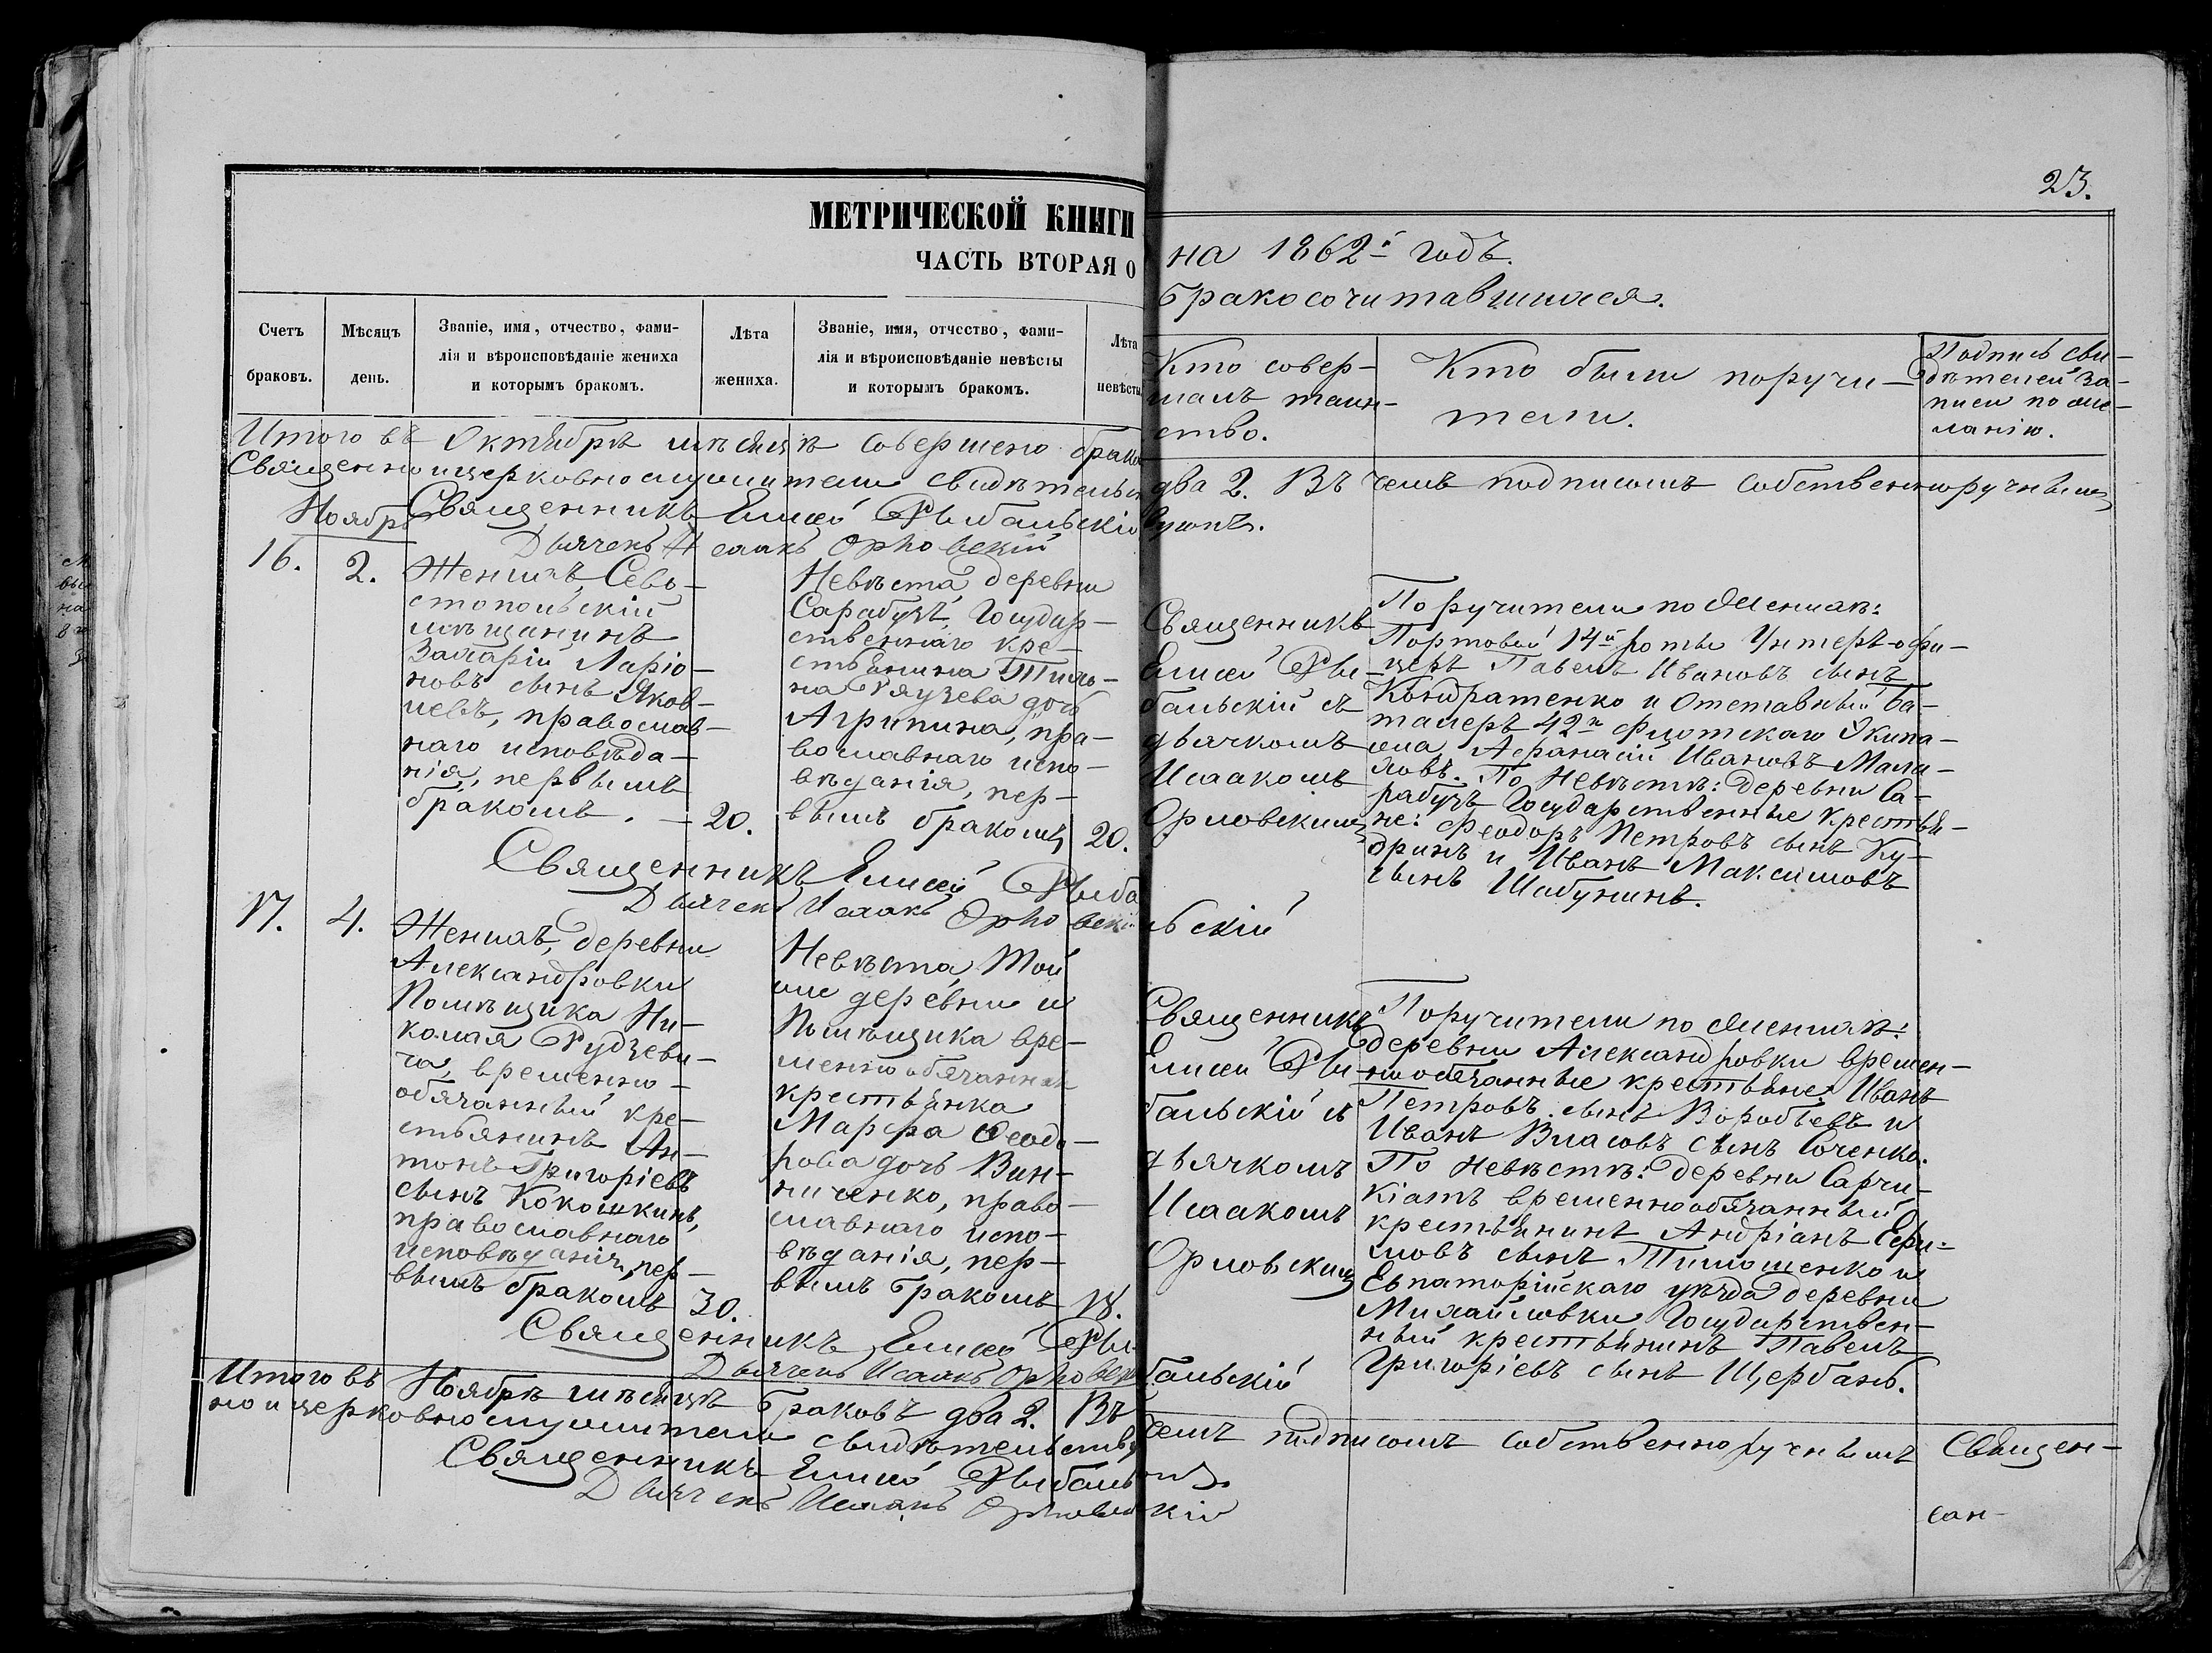 23.
МЕТРИЧЕСКОЙ КНИГИ на 1862й годъ.
ЧАСТЬ ВТОРАЯ О бракосочитавшихся.
Счетъ
браковъ.
Мѣсяцъ
день.
Званіе, имя, отчество, фами-
лія и вѣроисповѣданіе жениха
и которымъ бракомъ.
Лѣта
жениха.
Званіе, имя, отчество, фами-
лія и вѣроисповѣданіе невѣсты
и которымъ бракомъ.
Лѣта
невѣсты
Кто совер-
шалъ таин-
ство.
Кто были поручи-
тели.
Подпись сви-
дѣтелей за-
писи по же-
ланію.
Итого въ Октябрѣ мѣсяцѣ совершено брако два 2. Въ чемъ подписомъ собственноручнымъ
Священно и церковнослужители свидѣтельствуютъ.
Священникъ Елисей Рыбальскій
Дьячекъ Исаакъ Орловскій
Ноябрь
16.
2.
Женихъ, Сева-
стопольскій
мѣщанинъ
Захарій Ларіо-
новъ сынъ Яков-
левъ, православ-
наго исповѣда-
нія, первымъ
бракомъ. –
20.
Невѣста, деревни
Сарабузъ, Государ-
ственнаго кре-
стьянина Тихо-
на Рязцева дочь
Агрипина, пра-
вославнаго испо-
вѣданія, пер-
вымъ бракомъ
20.
Священникъ
Елисей Ры-
бальскій съ
дьячкомъ
Исаакомъ
Орловскимъ
Поручители по Женихѣ:
Портовой 14й роты Унтеръ-офи-
церъ Павелъ Ивановъ сынъ
Кондратенко и Отставный ба-
талеръ 42го флотскаго Экипа-
жа Афанасій Ивановъ Мала-
ховъ. По Невѣстѣ: деревни Са-
рабузъ Государственные крестья-
не: Феодоръ Петровъ сынъ Ку-
дринъ и Иванъ Максимовъ
сынъ Шабунинъ.
Священникъ Елисей Рыбальскій
Дьячекъ Исаакъ Орловскій
17.
4.
Женихъ, деревни
Александровки
Помѣщика Ни-
колая Рудзеви-
ча, временно-
обязанный кре-
стьянинъ Ан-
тонъ Григоріевъ
сынъ Кокошкинъ,
православнаго
исповѣданія, пер-
вымъ бракомъ
30.
Невѣста, той
же деревни и
Помѣщика вре-
менно обязанная
крестьянка
Марфа Феодо-
рова дочь Вин-
ниченко, право-
славнаго испо-
вѣданія, пер-
вымъ бракомъ
18.
Священникъ
Елисей Ры-
бальскій съ
дьячкомъ
Исаакомъ
Орловскимъ
Поручители по Женихѣ:
деревни Александровки времен-
но обязанные крестьяне: Иванъ
Петровъ сынъ Воробьевъ и
Иванъ Власовъ сынъ Соченко.
По Невѣстѣ: деревни Сарчи-
кіатъ временнообязанный
крестьянинъ Андріанъ Ефи-
мовъ сынъ Тимошенко и
Евпаторійскаго уѣзда деревни
Михайловки Государствен-
ный крестьянинъ Павелъ
Григоріевъ сынъ Щербань.
Священникъ Елисей Рыбальскій
Дьячекъ Исаакъ Орловскій
Итого въ Ноябрѣ мѣсяцѣ браковъ два 2. Въ чемъ подписомъ собственноручнымъ Священ-
но и церковнослужители свидѣтельствуютъ.
Священникъ Елисей Рыбальскій
Дьячекъ Исаакъ Орловскій